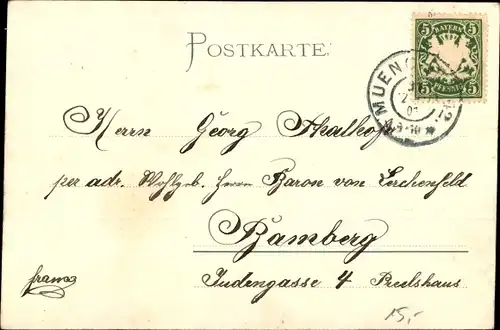 POSTKARTE.
5 BAYERN 5
5 PFENNIG 5
MUENCHEN
Herrn Georg Thalhofer
per adr. Wohlgeb. Herrn Baron von Lerchenfeld
Bamberg
Judengasse 4
franco
15,-